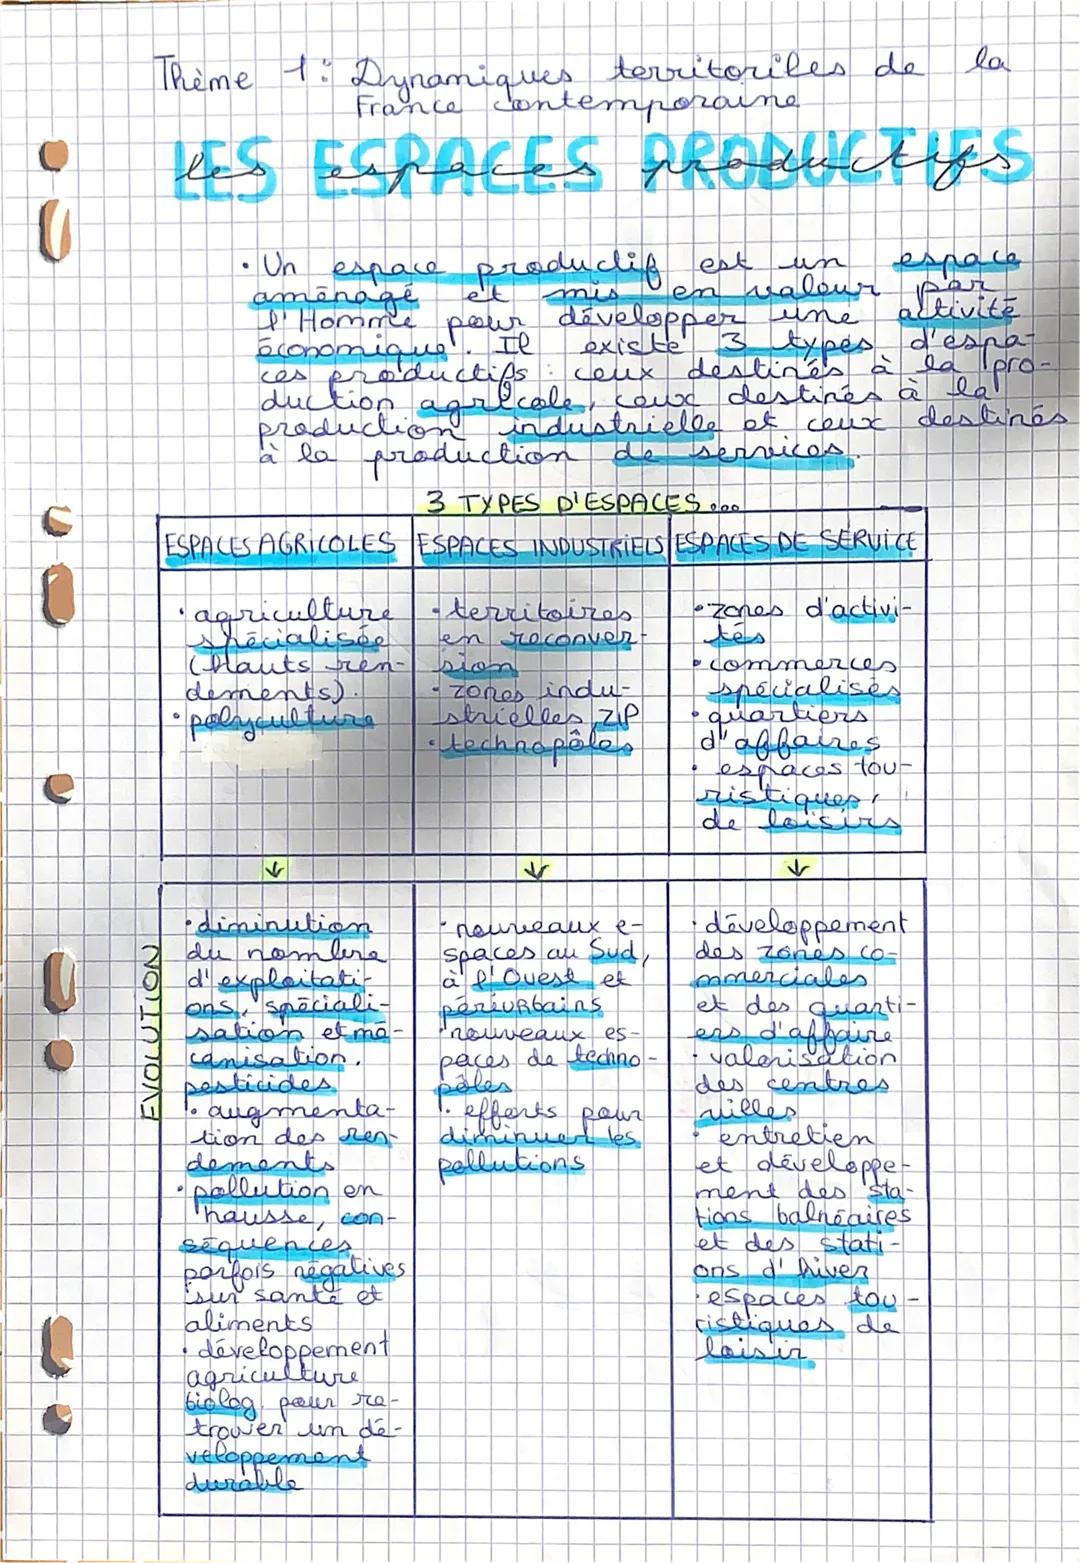 Thème 1: Dynamiques territoriles de la
France contemporaine
LES ESPACES PRODUCTIFS
les espaces productifs
• Un espace productif est un espace
aménagé et mis en valeur par
l'Homme pour développer une activité
économique. Il existe 3 types d'espa-
ces productifs : ceux destinés à la pro-
duction agricole, ceux destinés à la
production industrielle et ceux destinés
à la production de services.
3 TYPES D'ESPACES...
ESPACES AGRICOLES
• agriculture
spécialisée
(hauts ren-
dements).
• polyculture
ESPACES INDUSTRIELS
• territoires
en reconver-
sion
• zones indu-
strielles, ZIP
• technopôles
ESPACES DE SERVICE
• zones d'activi-
tés
• commerces
spécialisés
• quartiers
d'affaires
• espaces tou-
ristiques,
de loisirs
↓ ↓ ↓
EVOLUTION
• diminution
du nombre
d'exploitati-
ons, spéciali-
sation et mé-
canisation,
pesticides
• augmenta-
tion des ren-
dements
• pollution en
hausse, con-
séquences
parfois négatives
sur santé et
aliments
• développement
agriculture
biolog. pour re-
trouver un dé-
veloppement
durable
• nouveaux e-
spaces au Sud,
à l'Ouest et
périurbains
• nouveaux es-
paces de techno-
pôles
• efforts pour
diminuer les
pollutions
• développement
des zones co-
mmerciales
et des quarti-
ers d'affaire
• valorisation
des centres
villes
• entretien
et développe-
ment des sta-
tions balnéaires
et des stati-
ons d'hiver
• espaces tou-
ristiques de
loisir